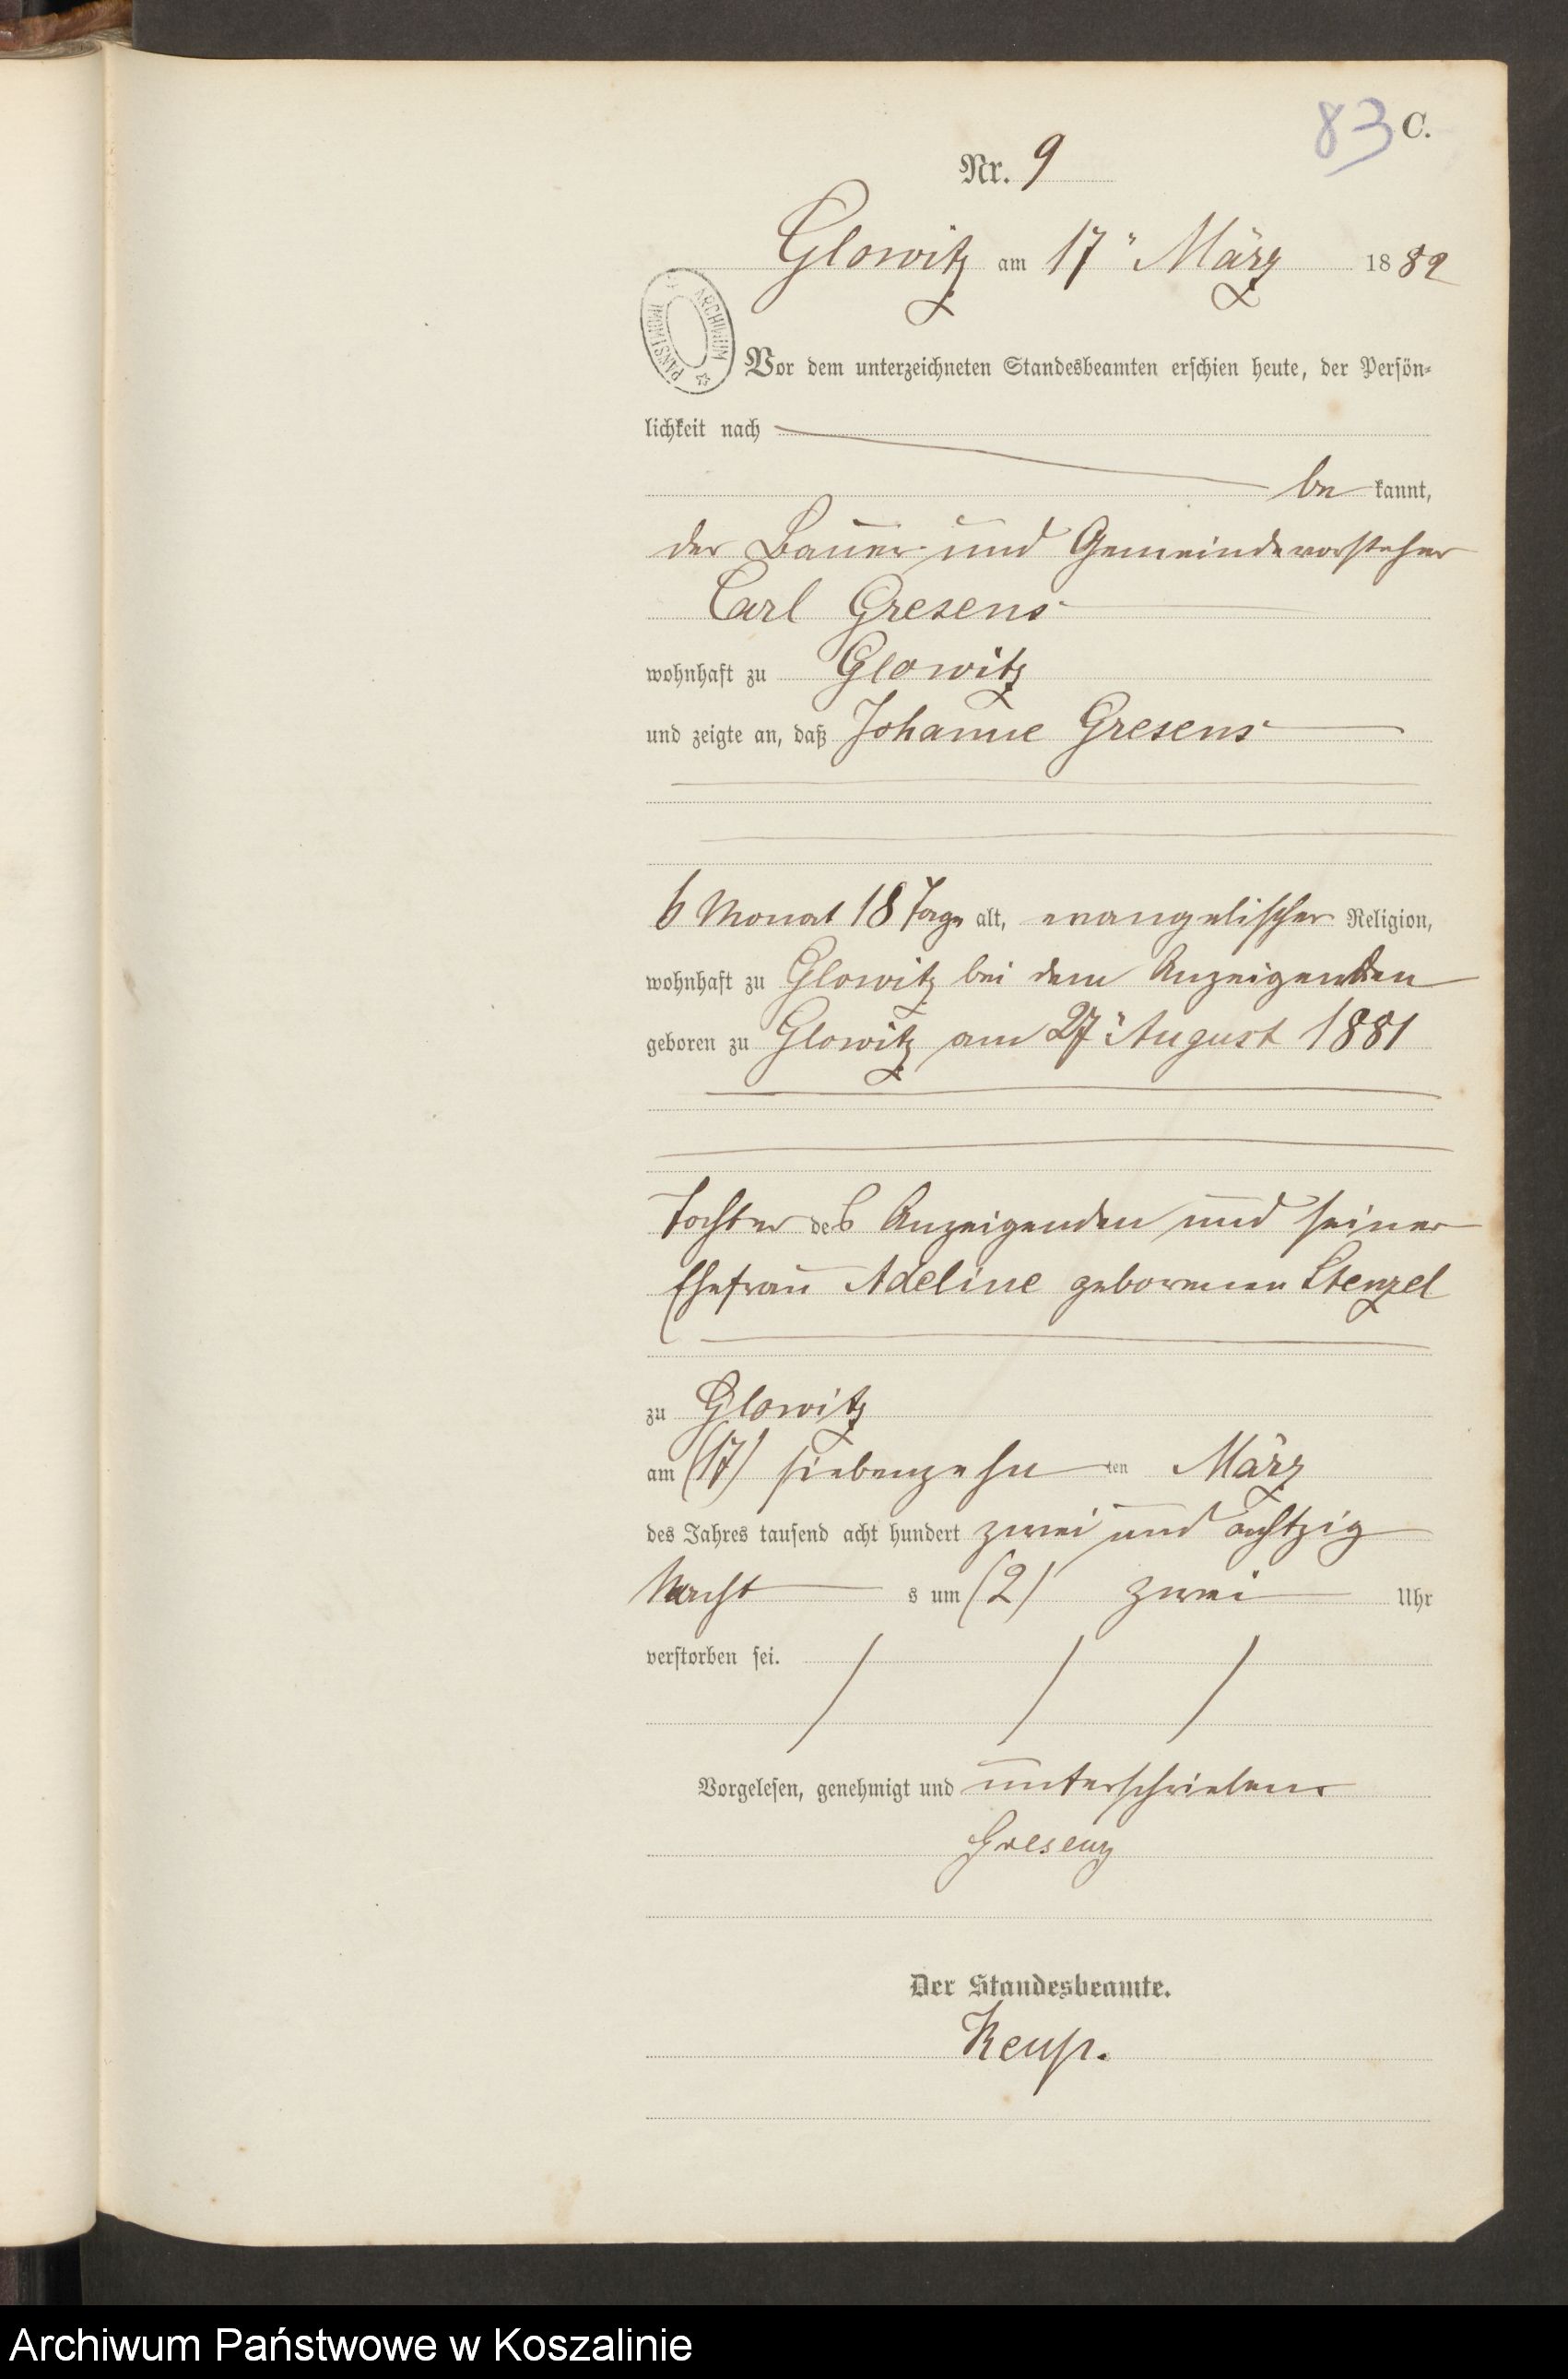 83 C.
Nr. 9
Glowitz am 17" März 1882
ARCHIWUM PAŃSTWOWE
Vor dem unterzeichneten Standesbeamten erschien heute, der Persön-
lichkeit nach
be kannt,
der Bauer und Gemeindevorsteher
Carl Gresens
wohnhaft zu Glowitz
und zeigte an, daß Johanne Gresens
6 Monat 18 Tage alt, evangelischer Religion,
wohnhaft zu Glowitz bei dem Anzeigenden
geboren zu Glowitz am 27" August 1881
Tochter des Anzeigenden und seiner
Ehefrau Adeline geborenen Stenzel
zu Glowitz
am (17) siebenzehn ten März
des Jahres tausend acht hundert zwei und achtzig
Nacht s um (2) zwei Uhr
verstorben sei.
Vorgelesen, genehmigt und unterschrieben
Gresens
Der Standesbeamte.
Archiwum Państwowe w Koszalinie